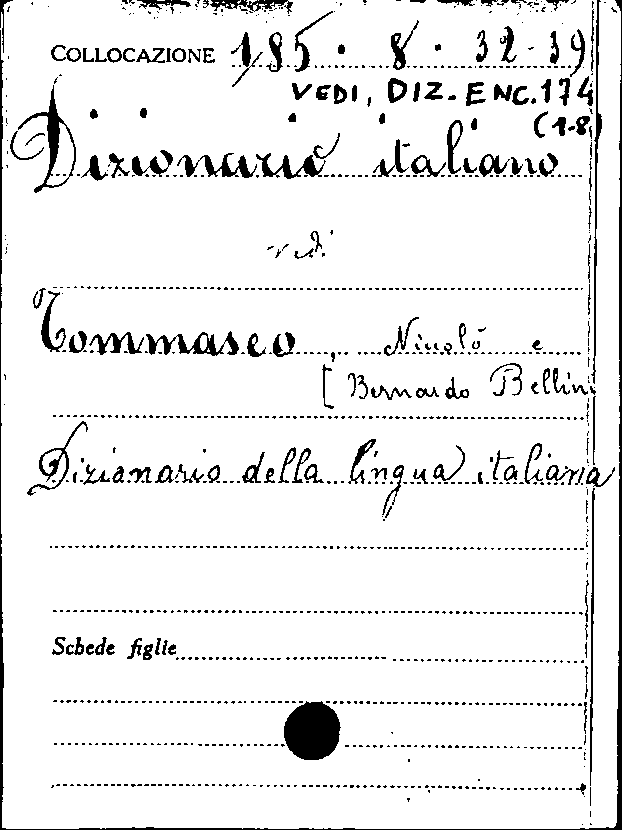 COLLOCAZIONE 185 · 8 · 32-39
VEDI, DIZ. ENC. 174
(1-8)
Dizionario italiano
vedi
Tommaseo, Nicolò e
[Bernardo Bellini
Dizionario della lingua italiana
Schede figlie